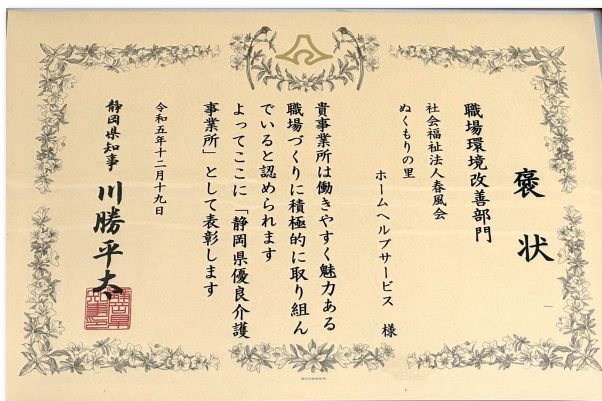 褒状
職場環境改善部門
社会福祉法人春風会
ぬくもりの里
ホームヘルプサービス 様
貴事業所は働きやすく魅力ある
職場づくりに積極的に取り組ん
でいると認められます
よってここに「静岡県優良介護
事業所」として表彰します
令和五年十二月十九日
静岡県知事 川勝平太